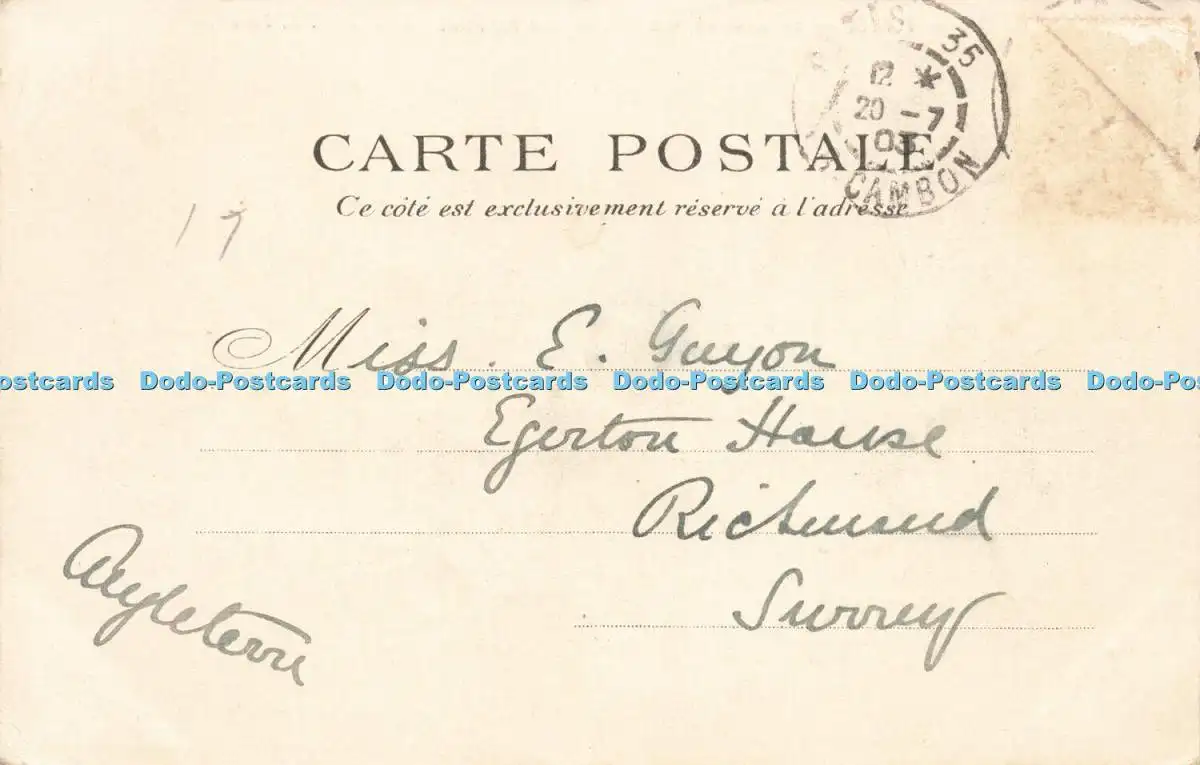 35
12 *
20 - 7
CAMBON
CARTE POSTALE
Ce côté est exclusivement réservé à l'adresse
17
Miss. E. Guyon
ostcards Dodo-Postcards Dodo-Postcards Dodo-Postcards Dodo-Postcards Dodo-Po
Egerton House
Richmond
Surrey
Angleterre